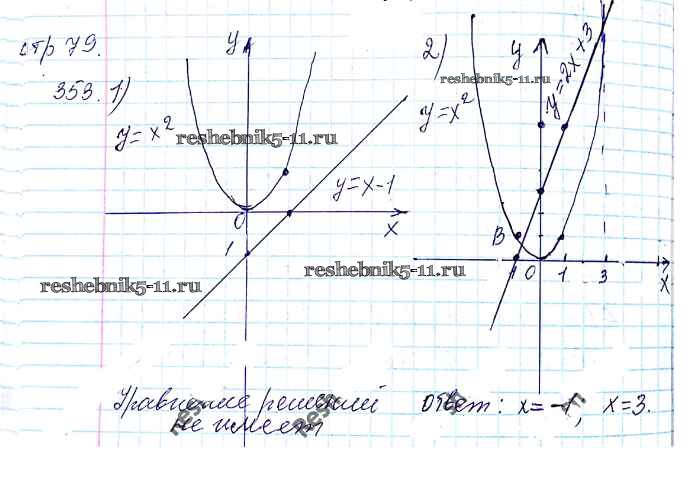 стр 79.
353. 1)
y = x²
y
y = x - 1
0
x
1
reshebnik5-11.ru
reshebnik5-11.ru
Уравнение решений
не имеет
2)
y = x²
y
y = 2x + 3
reshebnik5-11.ru
B
-1 0 1 3
x
reshebnik5-11.ru
ответ: x = -1, x = 3.